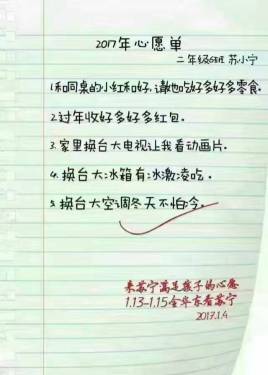 2017年心愿单
二年级6班 苏小宁
1.和同桌的小红和好,请他吃好多好多零食。
2.过年收好多好多红包。
3.家里换台大电视让我看动画片。
4.换台大冰箱有冰激凌吃。
5.换台大空调冬天不怕冷。
来苏宁满足孩子的心愿
1.13-1.15全华东看苏宁
2017.1.4